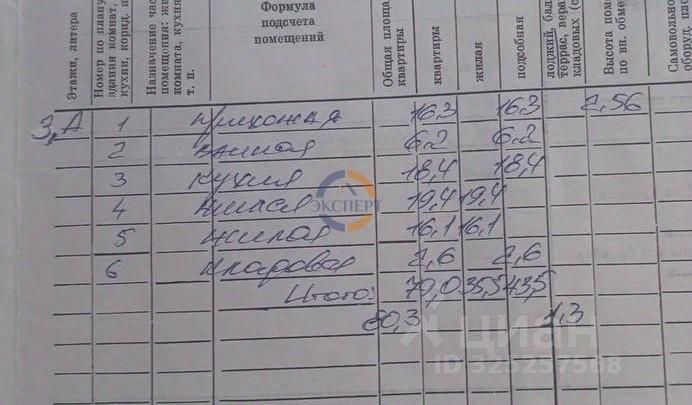 Этажи, литера
Номер по плану
здания комнат,
кухни, корид.
Назначение час
помещения: жи
комната, кухня
т. п.
Формула
подсчета
помещений
Общая площа
квартиры
квартиры
жилая
подсобная
лоджий, бал
террас, вера
кладовых (
Высота пом
по вн. обме
Самовольно
оборуд. пло
3, А 1 прихожая 16,3 16,3 2,56
2 ванная 6,2 6,2
3 кухня 18,4 18,4
4 жилая 19,4 19,4
5 жилая 16,1 16,1
6 кладовая 2,6 2,6
Итого: 79,0 35,5 43,5
80,3 1,3
ЭКСПЕРТ
циан
ID 325257568